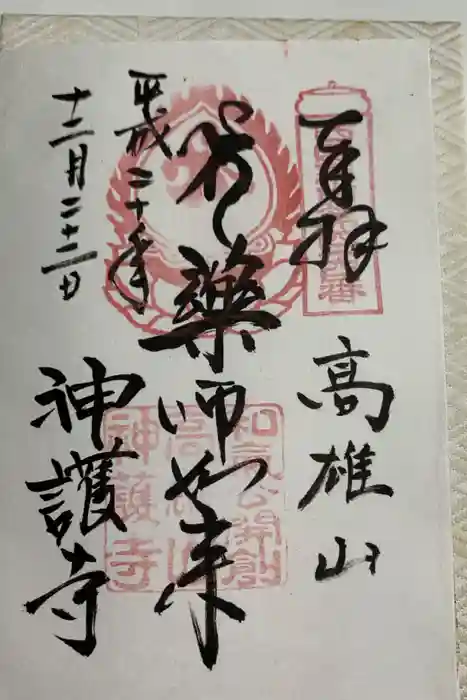 奉拝
高雄山
薬師如来
平成二十年
十二月二十三日
神護寺
和気公開創
高雄山
神護寺